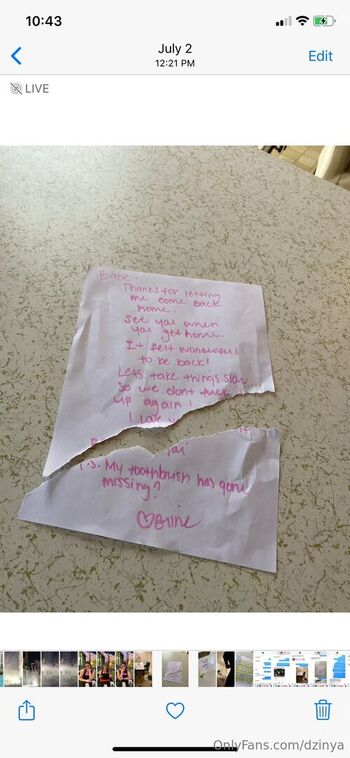 10:43
July 2
12:21 PM
Edit
LIVE
Babe -
Thanks for letting
me come back
home.
see you when
you get home.
It felt wonderful
to be back!
Lets take things slow
so we dont fuck
up again!
I Love
P.S. My toothbrush has gone
missing?
OnlyFans.com/dzinya